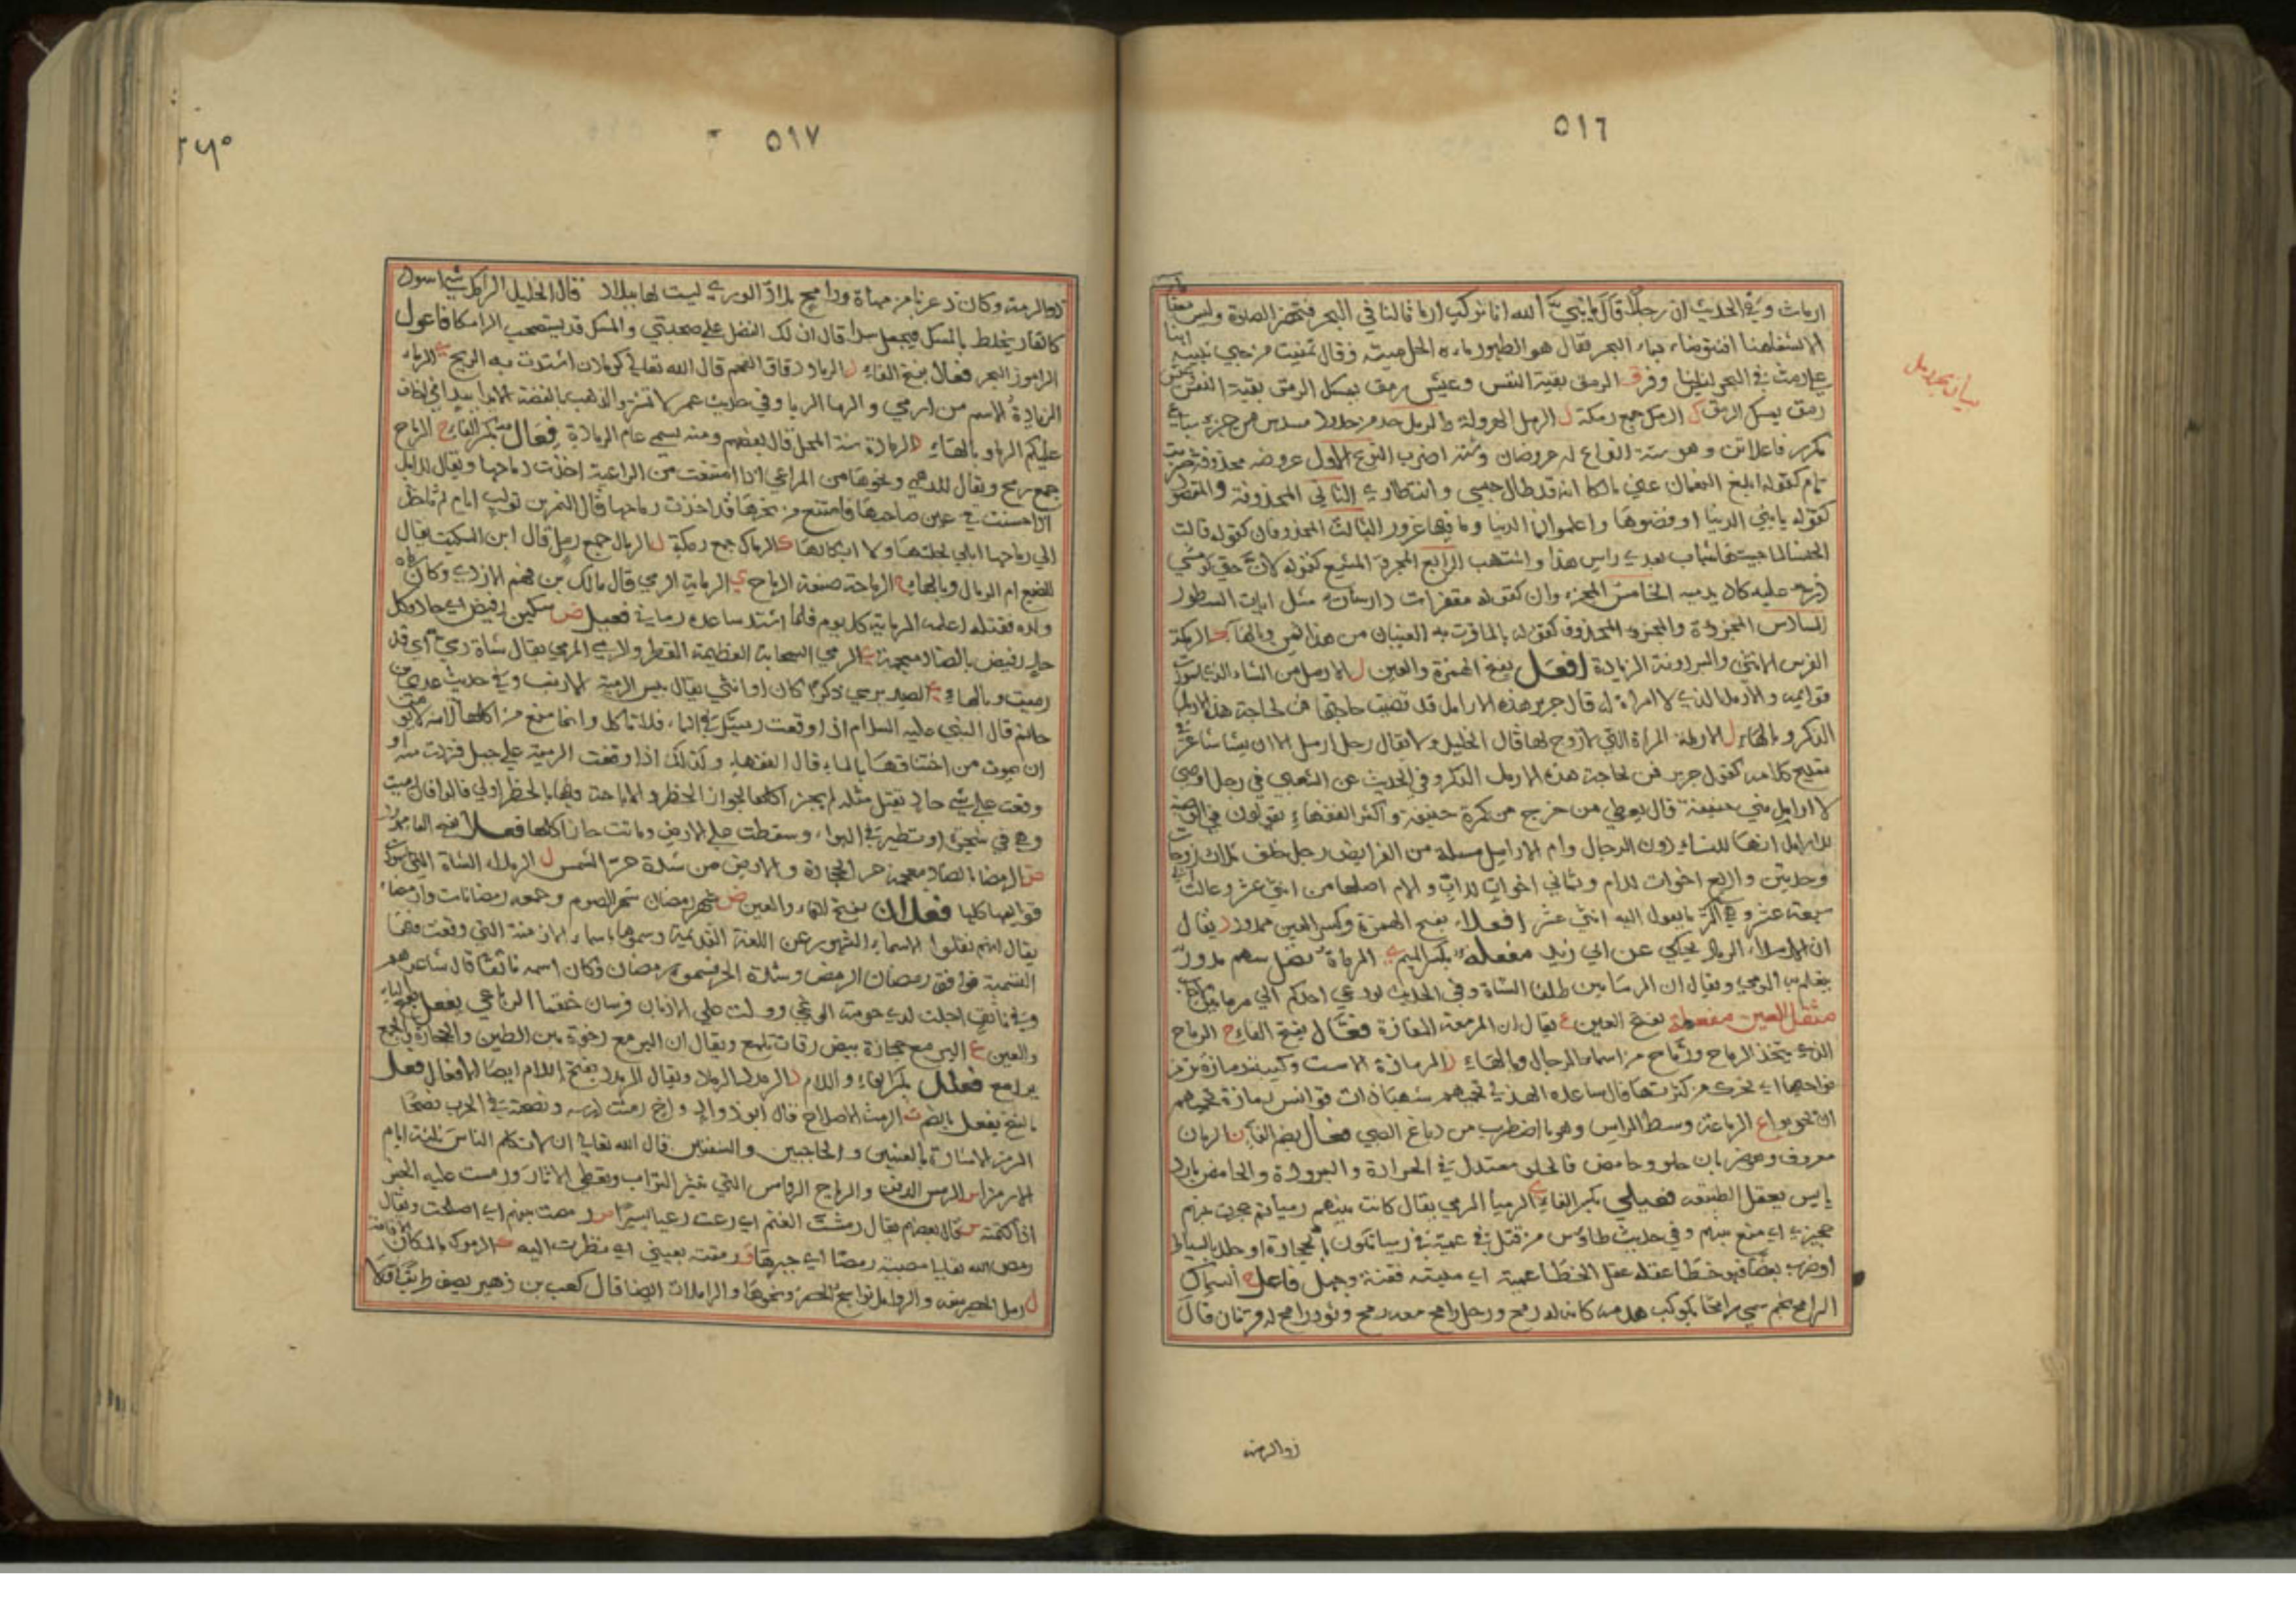 ٥١٦
ارماث وفي الحديث ان رجلا قال يا نبي الله انا نركب ارماثا لنا في البحر فتحضر الصلوة وليس معنا ماء
الا لشفاهنا افنتوضاء بماء البحر فقال هو الطهور ماءه الحل ميتته وقال تمنيت من حبي بثينة اننا
على رمث في البحر ليس لنا وفر ق الرمق بقية النفس وعيش رمق يمسك الرمق بقية النفس
رمق يمسك الرمق ك الرمك جمع رمكة ل الرمل الهرولة والرمل حد من حدود مسدس من جزء سباعي
مكرر فاعلاتن وهو ستة انواع له عروضان وستة اضرب النوع الاول عروضه محذوفة
تام كقوله ابلغ النعمان عني مالكا انه قد طال حبسي وانتظاري الثاني المحذوفة والمقصور
كقوله يا بني الدنيا ارفضوها واعلموا ان الدنيا وما فيها غرور الثالث المحذوفان كقوله قالت
الخنساء لما جيتها شاب بعدي راس هذا واشتهب الرابع المجزوة المشبع كقوله لان حتى لو مشى
الذر عليه كاد يدميه الخامس المجزو وان كقوله مقفرات دارسات مثل ايات السطور
السادس المجزوة والمجزو المحذوف كقوله ما لما قرت به العينان من هذا ثمن وبالهاء ك الرمكة
الفرس الانثى والبرذونة الرمادة افعل بفتح الهمزة والعين ل الارمل من الشاء الذي اسودت
قوايمه والارمل الذي لا امراة له قال جرير هذه الارامل قد قضيت حاجتها فمن لحاجة هذا الارمل
الذكر وبالهاء ل الارملة المراة التي لا زوج لها قال الخليل ولا يقال رجل ارمل الا ان يشا شاعر في
تمليح كلامه كقول جرير فمن لحاجة هذا الارمل الذكر وفي الحديث عن الشعبي في رجل اوصى
لارامل بني حنيفة قال يعطي من خرج من كمرة حنيفة واكثر الفقهاء يقولون في الوصية
للارامل انها للنساء دون الرجال وام الارامل مسئلة من الفرايض رجل خلف ثلاث زوجات
وجدتين واربع اخوات لام وثماني اخوات لاب وام اصلها من اثني عشر وعالت الى
سبعة عشر وهي اكثر ما يعول اليه اثني عشر افعلاء بفتح الهمزة وكسر العين ممدود د يقال
ان الارمداء الرماد يحكي عن ابي زيد مفعلة بكسر الميم ي المرماة نصل سهم مدور
يتعلم به الرمي ويقال ان المرماتين ظلفا الشاة وفي الحديث لو دعي احدكم الى مرماتين لاجاب
مثقل العين مفعلة بفتح العين ع يقال ان المرمعة المفازة فعال بفتح الفاء ح الرماح
الذي يتخذ الرماح ورماح من اسماء الرجال وبالهاء ز الرمازة الاست وكتيبة رمازة ترتمز
نواحيها اي تحرك من كثرتها قال ساعدة الهذلي تحميهم شهباء ذات قوانس رمازة تحميهم
ان يحربوا ع الرماعة وسط الراس وهو ما اضطرب من دماغ الصبي فعال بضم الفاء ن الرمان
معروف وهو ضربان حلو وحامض فالحلو معتدل في الحرارة والبرودة والحامض بارد
يابس يعقل الطبيعة فعيلى بكسر الفاء ي الرميا الرمي يقال كانت بينهم رميا ثم حجزت بينهم
حجيزى اي منع بينهم وفي حديث طاوس من قتل في عمية في رميا تكون بالحجارة او جلد بالسياط
او ضرب بعصا فهو خطا عقله عقل الخطا عمية اي ميتة فتنة وجهل فاعل ح السماك
الرامح نجم سمي رامحا بكوكب قدمه كانه له رمح ورجل رامح معه رمح وثور رامح له قرنان قال
ذو الرمة
بيان بحر رمل
٥١٧
٢٥٩
ذو الرمة وكائن ذعرنا من مهاة ورامح بلاد الورى ليست لها ببلاد قال الخليل الرامك شيء اسود
كالقار يخلط بالمسك فيجعل سكا قال ان لك الفضل على صحبتي والمسك قد يستصحب الرامكا فاعول
الراموز البحر فعال بفتح الفاء د الرماد دقاق الفحم قال الله تعالى كرماد اشتدت به الريح ي الرماء
الزيادة الاسم من ارمى والرماء الربا وفي حديث عمر لا تشتروا الذهب بالفضة الا يدا بيد اني اخاف
عليكم الرماء وبالهاء د الرمادة سنة المحل قال بعضهم ومنه يسمى عام الرمادة فعال بكسر الفاء ح الرماح
جمع رمح ويقال للبهمى ونحوها من المراعي اذا امتنعت من الراعية اخذت رماحها ويقال للابل
اذا حسنت في عين صاحبها فامتنع من نحرها قد اخذت رماحها قال النمر بن تولب ايام لم تاخذ
الي رماحها ابلي بجلتها ولا ابكارها ك الرماك جمع رمكة ل الرمال جمع رمل قال ابن السكيت يقال
للضبع ام الرمال وبالهاء ح الرماحة صنعة الرماح ي الرماية الرمي قال مالك بن فهم الازدي وكان رماه
ولده فقتله اعلمه الرماية كل يوم فلما اشتد ساعده رماني فعيل ض سكين رميض اي حاد وكل
حاد رميض بالضاد معجمة ي الرمي السحابة العظيمة القطر والرمي المرمي يقال شاة رمي اي قد
رميت وبالهاء ي الصيد يرمى ذكرا كان او انثى يقال بيس الرمية الارنب وفي حديث عدي بن
حاتم قال النبي عليه السلام اذا وقعت رميتك في الماء فلا تاكل وانما منع من اكلها لانه لا يؤمن
ان يموت من اختناقها بالماء قال الفقهاء وكذلك اذا وقعت الرمية على جبل فتردت منه او
وقعت على شيء حاد يقتل مثله لم يجز اكلها لجواز الحظر والاباحة وفيها بالحظر اولى قالوا فان رميت
وهي في شجرة او تطير في الهواء وسقطت على الارض وماتت جاز اكلها فعلاء بفتح الفاء ممدود
ض الرمضاء بالضاد معجمة حر الحجارة والارض من شدة حر الشمس ل الرملاء الشاة التي اسودت
قوايمها كلها فعلان بفتح الفاء والعين ض شهر رمضان شهر الصوم وجمعه رمضانات وارمضاء
يقال انهم نقلوا اسماء الشهور عن اللغة القديمة وسموها باسماء الازمنة التي وقعت فيها
التسمية فوافق رمضان الرمض وشدة الحر فسموه رمضان وكان اسمه ناتقا قال شاعرهم
وفي ناتق اجلت لدى حومة الوغى وولت على الادبار فرسان خثعما الرباعي يفعل بفتح الياء
والعين ع اليرمع حجارة بيض رقاق تلمع ويقال ان اليرمع رخوة بين الطين والحجارة والجمع
يرامع فعلل بكسر الفاء واللام د الرمدد الرماد ويقال الرمدد بفتح اللام ايضا الافعال فعل
بالفتح يفعل بالضم ث الرمث الاصلاح قال ابو ذواد واخ رمثت دريسه ونصحته في الحرب نصحا
الرمز الاشارة بالعينين والحاجبين والشفتين قال الله تعالى ان لا تكلم الناس ثلثة ايام
الا رمزا س الرمس الدفن والرياح الروامس التي تثير التراب وتغطي الاثار ورمست عليه الخبر
اذا كتمته ش قال بعضهم يقال رمشت الغنم اي رعت رعيا يسيرا ص رمصت بينهم اي اصلحت ويقال
رمص الله تعالى مصيبته رمصا اي جبرها ق رمقته بعيني اي نظرت اليه ك الرموك بالمكان الاقامة
ل رمل الحصير سفه والروامل نواسج الحصر ونحوها والراملات ايضا قال كعب بن زهير يصف طريقا فلا